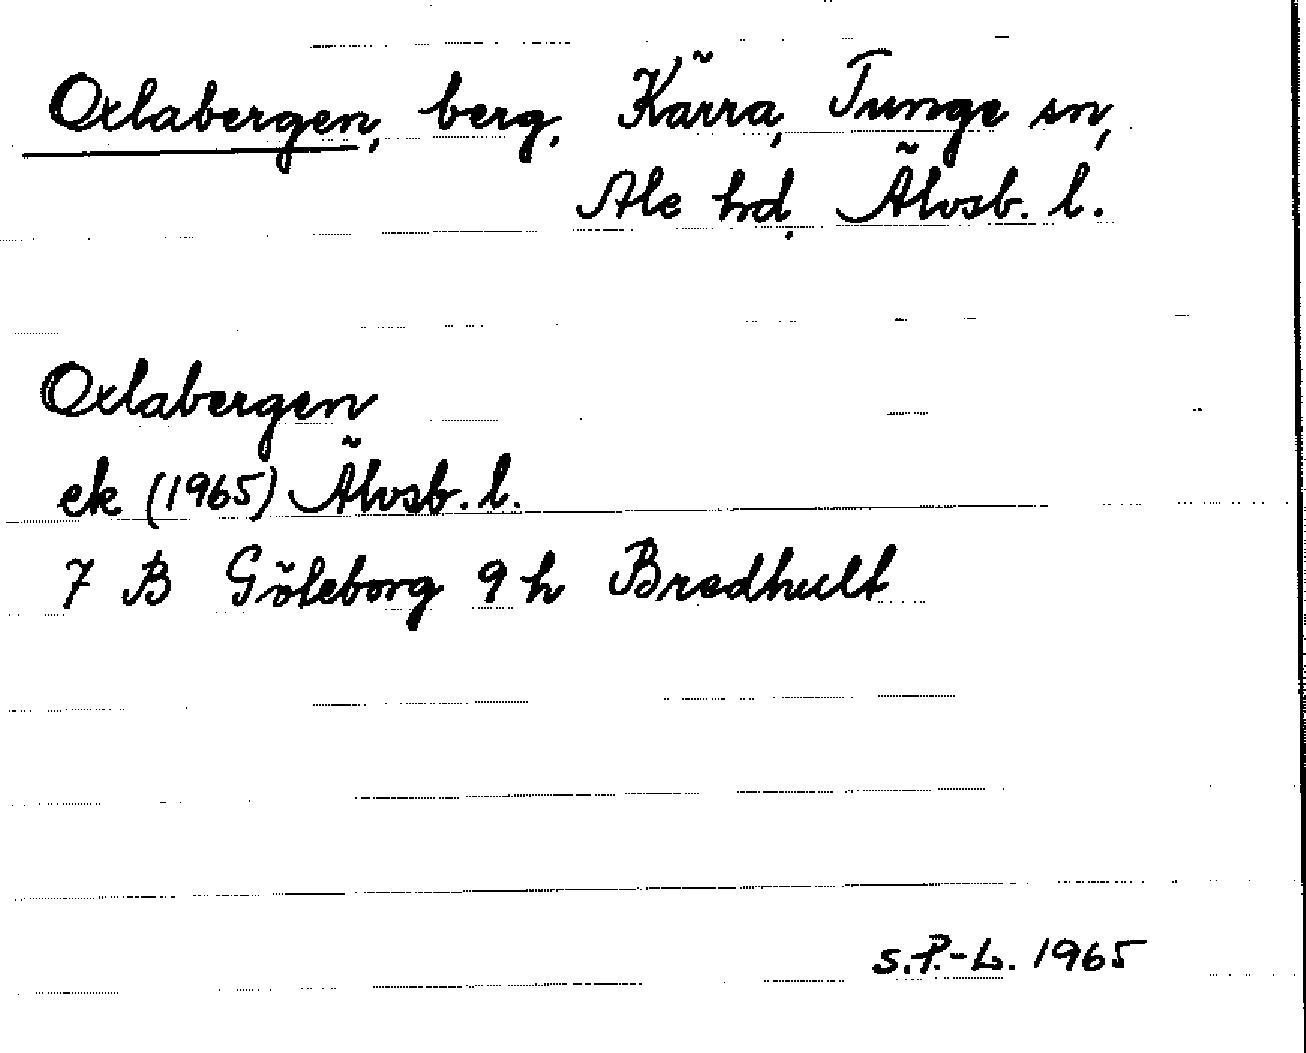 Oxlabergen, berg, Kärra, Tunge sn,
Ale hd. Älvsb. l.
Oxlabergen
ek (1965) Älvsb. l.
7 B Göteborg 9 h Bredhult
S.P.-L. 1965